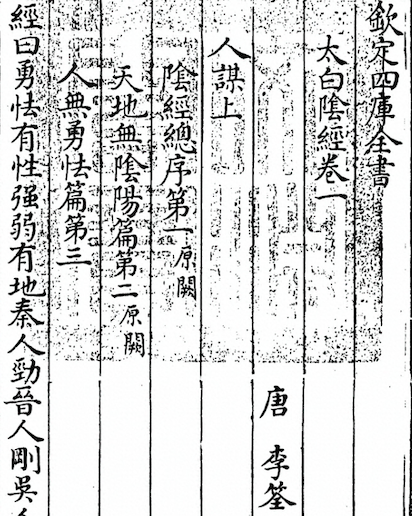 欽定四庫全書
太白陰經卷一
唐 李筌
人謀上
陰經總序第一原闕
天地無陰陽篇第二原闕
人無勇怯篇第三
經曰勇怯有性强弱有地秦人勁晉人剛吳